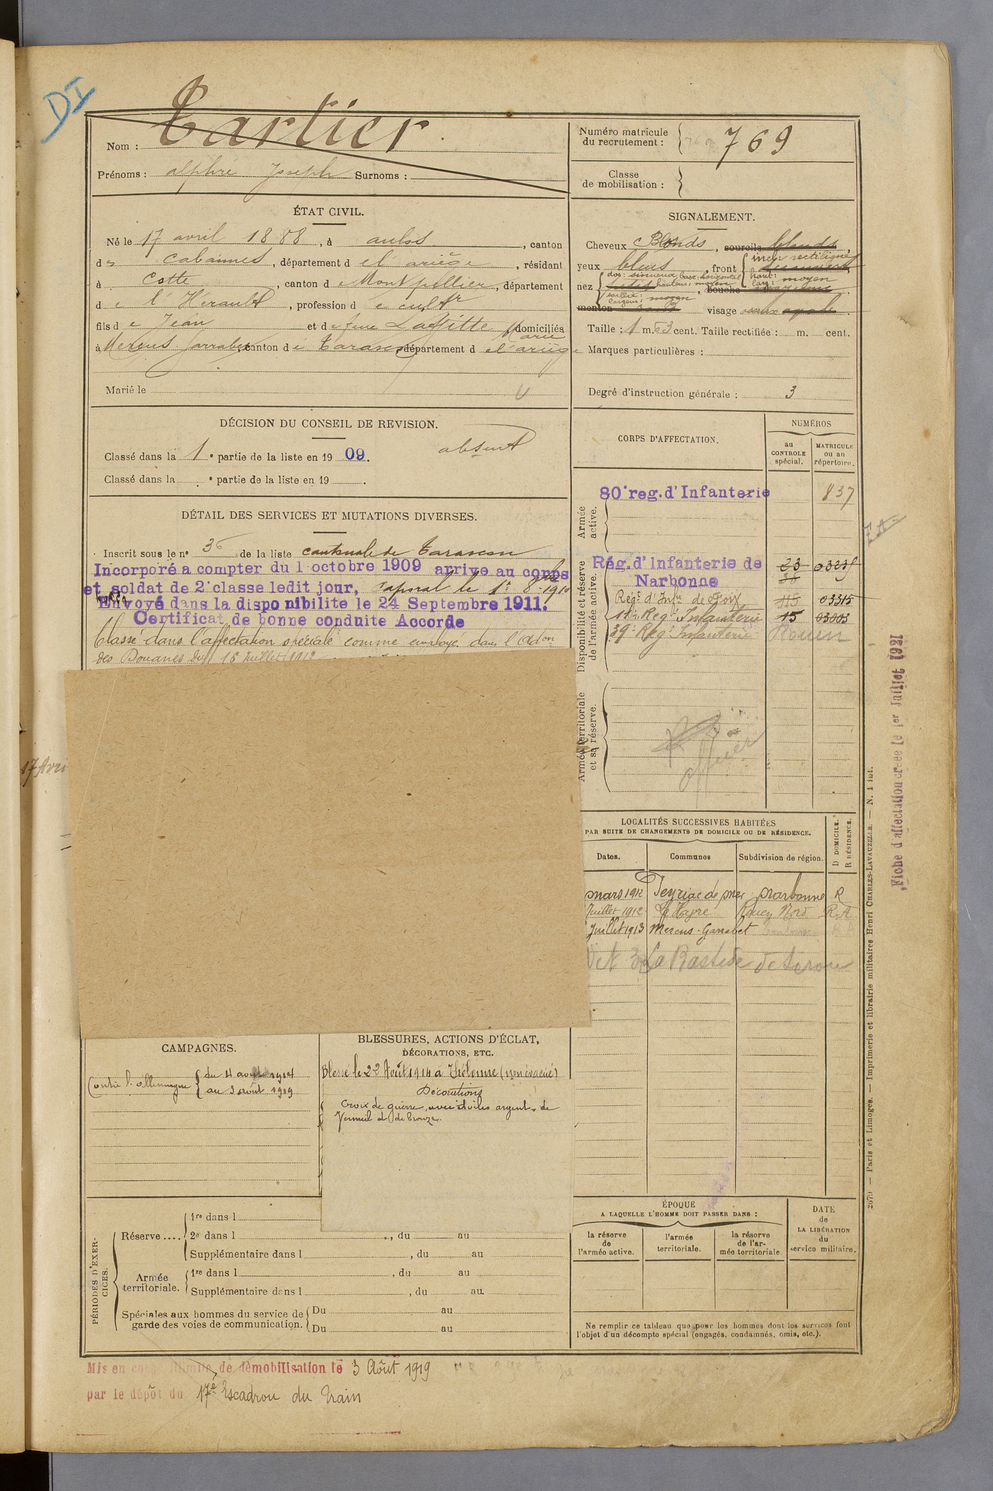 DI
Nom : Cartier
Prénoms : alphré Joseph Surnoms :
Numéro matricule du recrutement : 769
Classe de mobilisation :
ÉTAT CIVIL.
Né le 17 avril 1888, à aulos, canton
de Cabannes, département de l'ariège, résidant
à Cette, canton de Montpellier, département
de l'Hérault, profession de cultr
fils de Jean et de feue Laffitte Marie, domiciliés
à Mercus Garrabet canton de Tarascon département de l'ariège
Marié le
SIGNALEMENT.
Cheveux Blonds, sourcils blonds,
yeux bleus, front
inclr rectiligne
haut :
larg : moyen
nez
dos : sinueux base : horizontal
hauteur : moyen
saillie :
largeur : moyen
bouche moyenne
menton visage
Taille : 1 m. 63 cent. Taille rectifiée : m. cent.
Marques particulières :
Degré d'instruction générale : 3
DÉCISION DU CONSEIL DE REVISION.
Classé dans la 1e partie de la liste en 1909. absent
Classé dans la e partie de la liste en 19 .
DÉTAIL DES SERVICES ET MUTATIONS DIVERSES.
Inscrit sous le no 36 de la liste cantonale de Tarascon
Incorporé a compter du 1 octobre 1909 arrivé au corps
et soldat de 2e classe ledit jour, caporal le 1er 8bre 1910
Envoyé dans la disponibilite le 24 Septembre 1911.
Certificat de bonne conduite Accorde
Classé dans l'affectation spéciale comme employé dans l'adon
des Douanes du 15 juillet 1912
17 Avri
CORPS D'AFFECTATION.
NUMÉROS
au CONTROLE spécial.
MATRICULE ou au répertoire.
Armée active.
80e reg. d'Infanterie 837
Disponibilité et réserve de l'armée active.
Rég. d'Infanterie de Narbonne
Régt d'Infie de Foix 03315
Régt Infanterie 15 03003
39e Régt Infanterie Rouen
Armée territoriale et sa réserve.
LOCALITÉS SUCCESSIVES HABITÉES
PAR SUITE DE CHANGEMENTS DE DOMICILE OU DE RÉSIDENCE.
Dates. Communes Subdivision de région. D DOMICILE. R RÉSIDENCE.
mars 1912 Peyriac de mer Narbonne R
Juillet 1912 Le Havre Rouen Nord R.A
Juillet 1913 Mercus-Garrabet
La Bastide de Serou
CAMPAGNES.
Contre l'allemagne du 4 août 1914
au 3 août 1919
BLESSURES, ACTIONS D'ÉCLAT,
DÉCORATIONS, ETC.
Blessé le 22 Août 1914 à Thélonne (non évacué)
Décorations
Croix de guerre, avec étoiles argent, de
Vermeil et de bronze.
PÉRIODES D'EXERCICES.
Réserve....
1re dans l
2e dans l , du au
Supplémentaire dans l , du au
Armée territoriale.
1re dans l , du au
Supplémentaire dans l , du au
Spéciales aux hommes du service de garde des voies de communication.
Du au
Du au
ÉPOQUE
A LAQUELLE L'HOMME DOIT PASSER DANS :
la réserve de l'armée active.
l'armée territoriale.
la réserve de l'armée territoriale.
DATE de LA LIBÉRATION du service militaire.
Ne remplir ce tableau que pour les hommes dont les services font
l'objet d'un décompte spécial (engagés, condamnés, omis, etc.).
Mis en congé illimité de démobilisation le 3 Août 1919
par le dépôt du 17e Escadron du Train
Fiche d'affectation créée le 1er Juillet 1921
2670 — Paris et Limoges. — Imprimerie et librairie militaires Henri CHARLES-LAVAUZELLE. — N. 1 int.